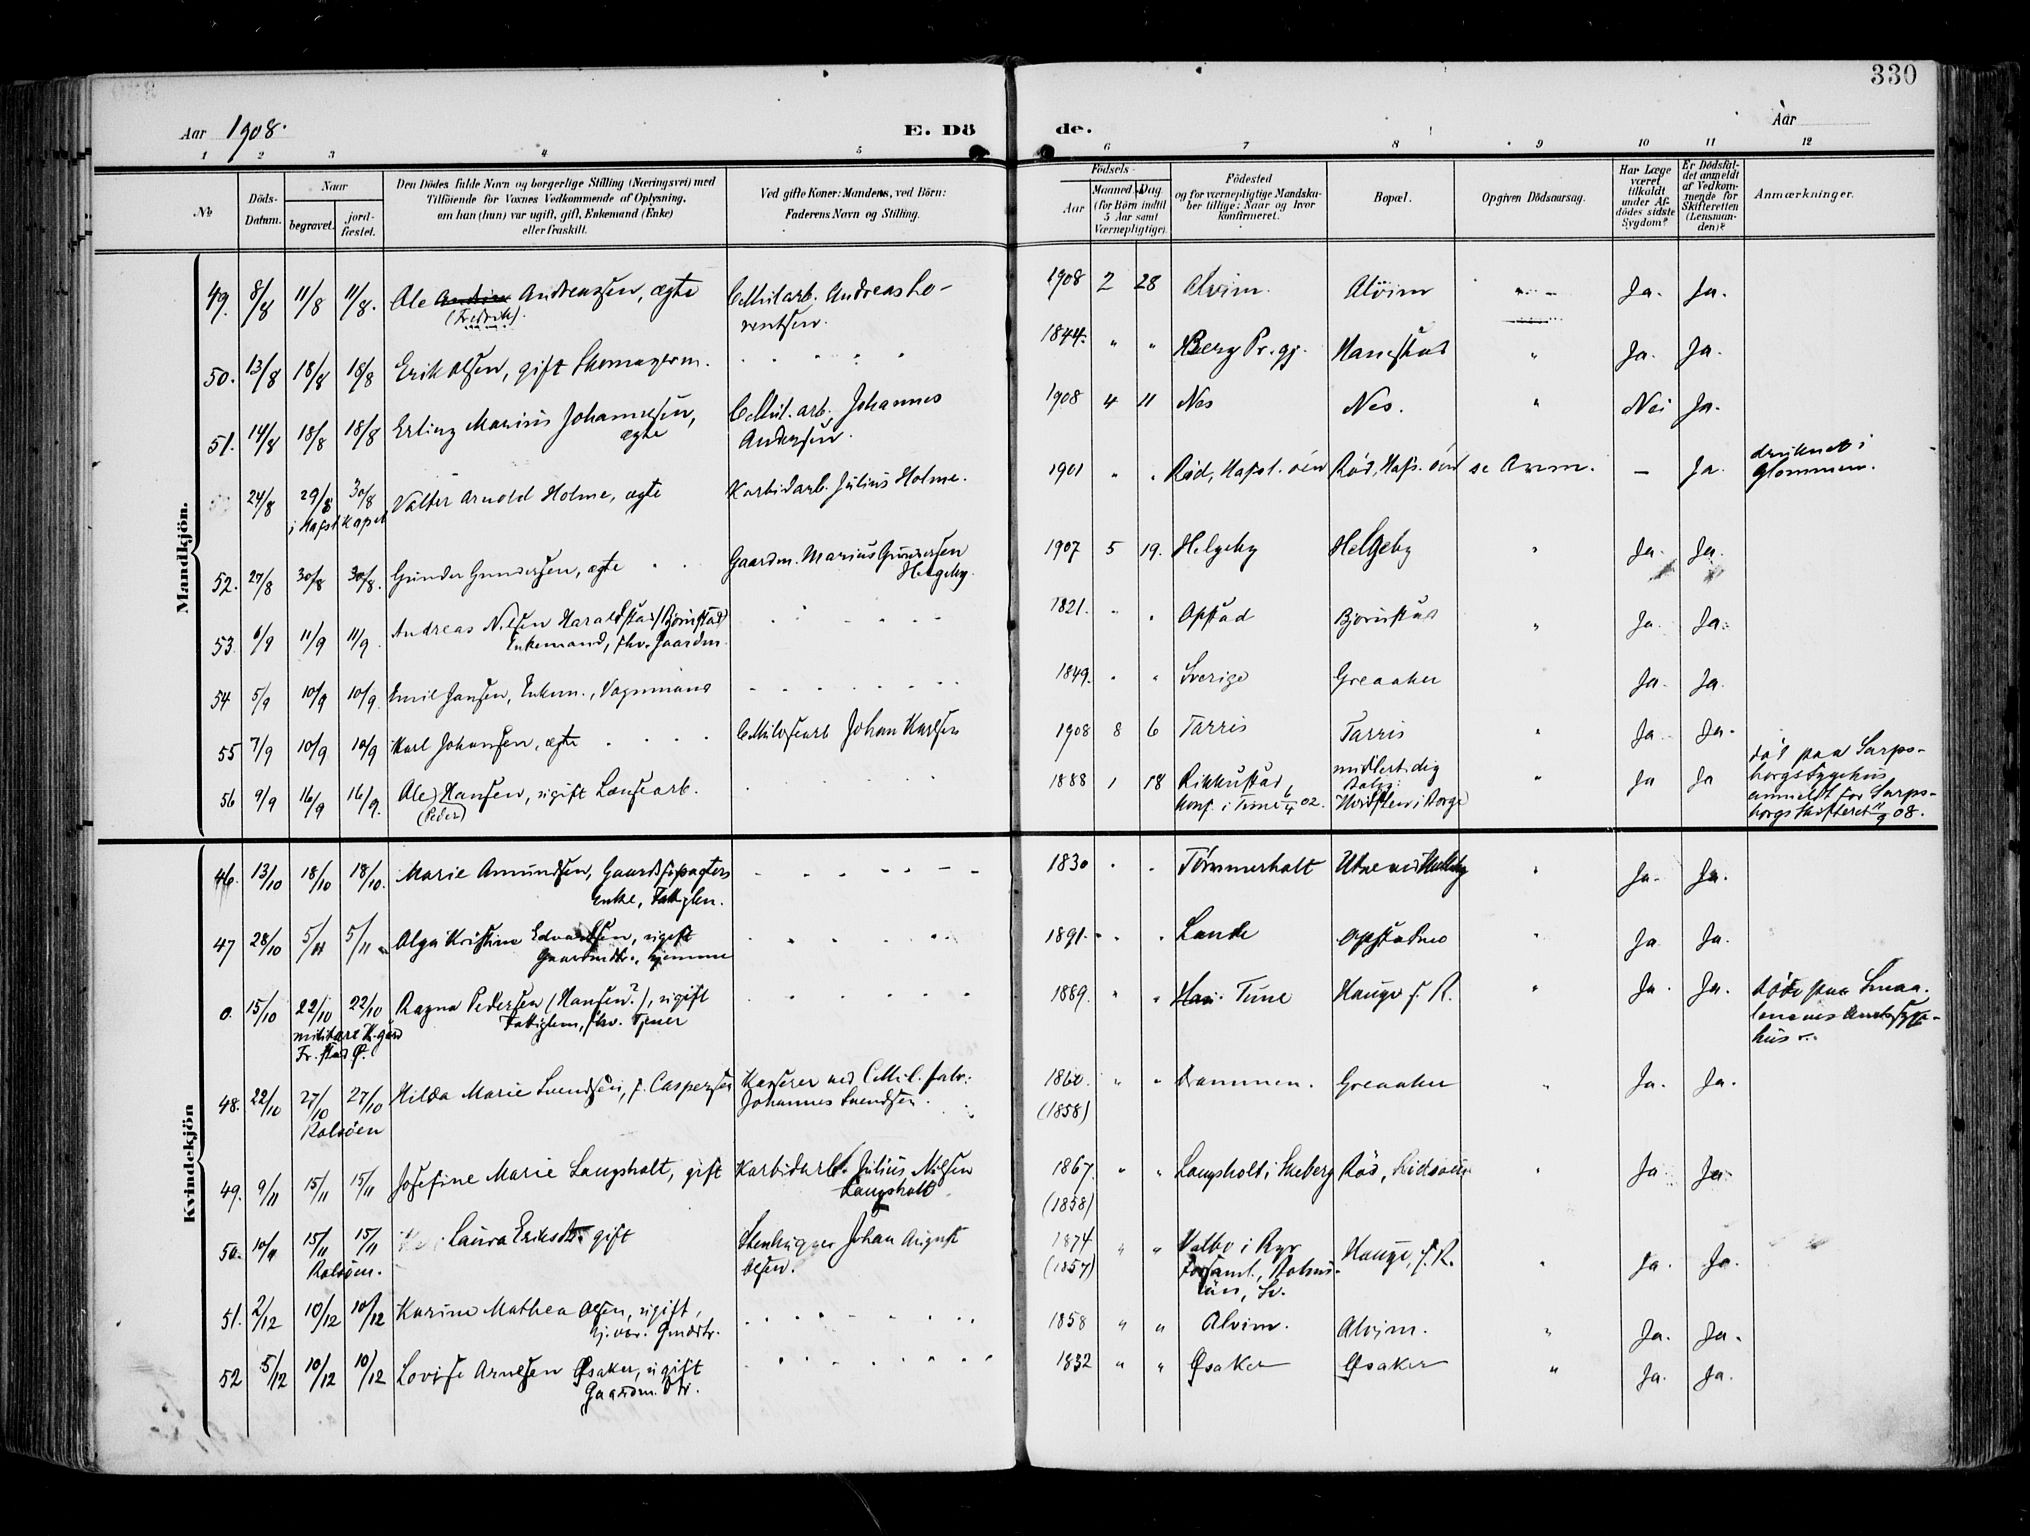 330
Aar 1908.
E. Dö
de.
Aar
1 2 3 4 5 6 7 8 9 10 11 12
No
Döds-
Datum.
Naar
begravet.
jord-
fæstet.
Den Dödes fulde Navn og borgerlige Stilling (Næringsvei) med
Tilföiende for Voxnes Vedkommende af Oplysning,
om han (hun) var ugift, gift, Enkemand (Enke)
eller fraskilt.
Ved gifte Koner: Mandens, ved Börn:
Faderens Navn og Stilling.
Födsels-
Aar
Maaned Dag
(for Börn indtil
5 Aar samt
Værnepligtige).
Födested
og for værnepligtige Mandska-
ber tillige: Naar og hvor
konfirmeret.
Bopæl.
Opgiven Dödsaarsag.
Har Læge
været
tilkaldt
under Af-
dödes sidste
Sygdom?
Er Dödsfal-
det anmeldt
af Vedkom-
mende for
Skifteretten
(Lensman-
den)?
Anmærkninger.
Mandkjön.
49. 8/8 11/8 11/8. Ole Andreassen, ægte Cellul arb. Andreas Lo- 1908 2 28 Alvim. Alvim " Ja. Ja.
(Fredrik). rentsen.
50. 13/8 18/8 18/8 Erik Olsen, gift Skomagerm. 1844. " " Berg Pr.gj. Hanestad " Ja. Ja.
51. 14/8 18/8 18/8 Erling Marius Johannesen, Cellul. arb. Johannes 1908 4 11 Nes Nes. " Nei Ja.
ægte Andersen.
24/8 29/8 30/8 Valter Arnold Holme, ægte Karbidarb. Julius Holme. 1901 " " Rød, Hafsl. öen Rød, Hafs. öen se Anm. – Ja. druknet i
i Hafsl. kapel Glommen.
52. 27/8 30/8 30/8. Gunder Gundersen, ægte Gaardm. Marius Gundersen 1907 5 19. Helgeby Helgeby " Ja. Ja.
Helgeby.
53. 6/9 11/9 11/9. Andreas Nilsen Haraldstad/Bjørnstad 1821. " " Opstad Bjørnstad " Ja. Ja.
Enkemand, fhv. Gaardm.
54 5/9 10/9 10/9. Emil Jansen, Enkem., Vognmand 1849. " " Sverige Greaaker Ja. Ja.
55 7/9 10/9 10/9 Karl Johansen, ægte Cellulosearb Johan Karlsen 1908 8 6 Tarris Tarris " Ja Ja.
56 9/9 16/9 16/9. Ole Hansen, ugift Lænsearb. 1888 1 18 midlertidig " Ja Ja død paa Sarps-
(Peder) Konf. i Tune 02. i Borge borgs Sygehus
anmeldt for Sarps-
borgs Skifteret 11/9 08.
Kvindekjön
46. 13/10 18/10 18/10. Marie Amundsen, Gaardsforpagters 1830 " " Tømmerholt Utne ved " Ja. Ja.
Enke, Fattiglem.
47 28/10 5/11 5/11 Olga Kristine Edvardsen, ugift 1891. " " Lande Opstadneo " Ja. Ja.
Gaardmdtr., hjemme
0. 15/10 22/10 22/10 Ragna Pedersen (Hansen?), ugift 1889. " " Tune Hauge f. R. " Ja. Ja. Døde paa Smaa-
militære K.gård Fattiglem, fhv. Tjener lenenes Amtssyge-
Fr. stad Ø. hus
48. 22/10 27/10 27/10 Hilda Marie Svendsen, f. Caspersen Kasserer ved Cellul. fabr: 1860. " " Drammen. Greaaker " Ja. Ja.
Rolvsöen Johannes Svendsen. (1858)
49. 9/11 15/11 15/11 Josefine Marie Langsholt, gift Karbidarb. Julius Nilsen 1867. " " Langsholt i Skeberg Rød, " Ja Ja.
Langsholt (1858)
50. 10/11 15/11 15/11 Laura Eriksdtr. gift Stenhugger Johan August 1874 " " Valbo i Ryr Hauge, f. R. " Ja. Ja.
Rolvsöen. Olsen. (1857) Forsaml., Bohus-
län, Sv.
51. 2/12 10/12 10/12 Karine Mathea Olsen, ugift, 1858 " " Alvim. Alvim. " Ja. Ja.
hj.vær. Gmdsdtr.
52 5/12 10/12 10/12 Lovise Arnesen Øsaker, ugift 1832 " " Øsaker Øsaker " Ja. Ja.
Gaardm. Dtr.